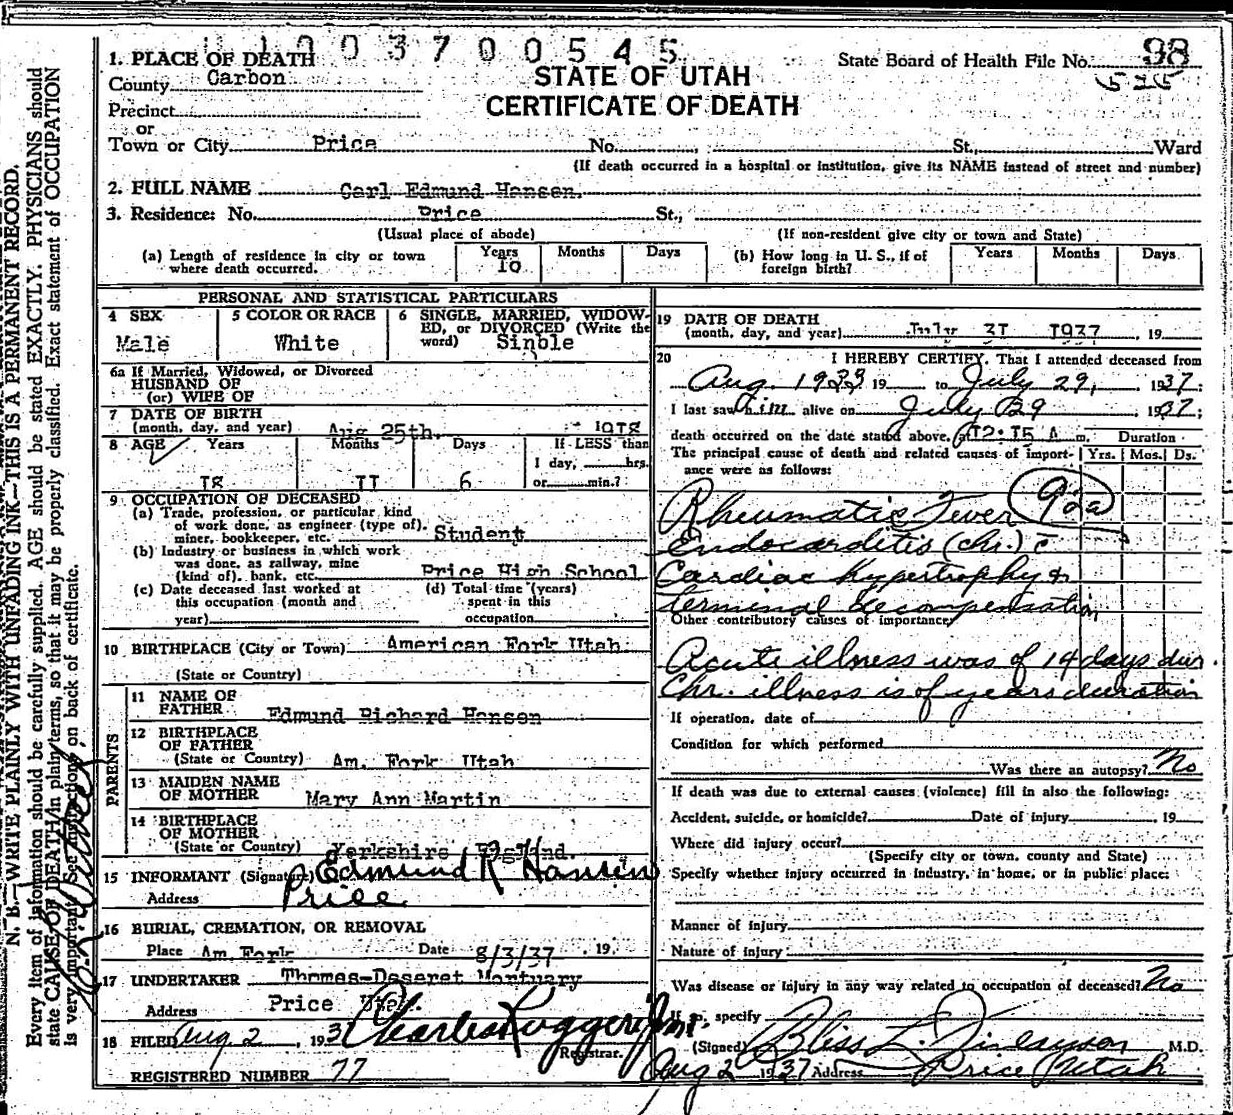 1003700545
1. PLACE OF DEATH
County Carbon
State Board of Health File No. 98
525
STATE OF UTAH
CERTIFICATE OF DEATH
Precinct
or
Town or City Price No. St., Ward
(If death occurred in a hospital or institution, give its NAME instead of street and number)
2. FULL NAME Carl Edmund Hansen.
3. Residence: No. Price St.,
(Usual place of abode) (If non-resident give city or town and State)
(a) Length of residence in city or town where death occurred. Years 10 Months Days
(b) How long in U. S., if of foreign birth? Years Months Days
PERSONAL AND STATISTICAL PARTICULARS
4 SEX Male
5 COLOR OR RACE White
6 SINGLE, MARRIED, WIDOWED, or DIVORCED (Write the word) Sinble
6a If Married, Widowed, or Divorced
HUSBAND OF
(or) WIFE OF
7 DATE OF BIRTH
(month, day, and year) Aug 25th. 1918
8 AGE Years Months Days If LESS than
1 day, hrs.
I8 II 6 or min.?
9 OCCUPATION OF DECEASED
(a) Trade, profession, or particular kind
of work done, as engineer (type of),
miner, bookkeeper, etc. Student
(b) Industry or business in which work
was done, as railway, mine
(kind of), bank, etc. Price High School
(c) Date deceased last worked at
this occupation (month and
year)
(d) Total time (years)
spent in this
occupation
10 BIRTHPLACE (City or Town) American Fork Utah
(State or Country)
PARENTS
11 NAME OF
FATHER Edmund Richard Hansen
12 BIRTHPLACE
OF FATHER
(State or Country) Am. Fork Utah
13 MAIDEN NAME
OF MOTHER Mary Ann Martin
14 BIRTHPLACE
OF MOTHER
(State or Country) Yerkshire England.
15 INFORMANT (Signature) Edmund R Hansen
Address Price
16 BURIAL, CREMATION, OR REMOVAL
Place Am. Fork Date 8/3/37 19
17 UNDERTAKER Thomas-Deseret Mortuary
Address Price Utah.
18 FILED Aug 2, 193 Charles Ruggeri Jr.
Registrar.
REGISTERED NUMBER 77
19 DATE OF DEATH
(month, day, and year) July 3I I937, 19
20 I HEREBY CERTIFY, That I attended deceased from
Aug. 1933 19 to July 29, 1937;
I last saw him alive on July 29, 1937;
death occurred on the date stated above, at I2:I5 A m. Duration
The principal cause of death and related causes of importance were as follows: Yrs. Mos. Ds.
Rheumatic Fever 92a
Endocarditis (chr.) c̄
Cardiac hypertrophy &
terminal decompensation
Other contributory causes of importance
Acute illness was of 14 days dur.
Chr. illness is of years duration
If operation, date of
Condition for which performed
Was there an autopsy? No
If death was due to external causes (violence) fill in also the following:
Accident, suicide, or homicide? Date of injury, 19
Where did injury occur?
(Specify city or town, county and State)
Specify whether injury occurred in industry, in home, or in public place:
Manner of injury
Nature of injury
Was disease or injury in any way related to occupation of deceased? No
If so, specify
(Signed) Bliss L. Finlayson M.D.
Aug 2 1937 Address Price Utah
N. B.—WRITE PLAINLY WITH UNFADING INK—THIS IS A PERMANENT RECORD.
Every item of information should be carefully supplied. AGE should be stated EXACTLY. PHYSICIANS should
state CAUSE OF DEATH in plain terms, so that it may be properly classified. Exact statement of OCCUPATION
is very important. See instructions on back of certificate.